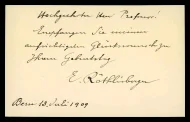 Hochgeehrter Herr Professor!
Empfangen Sie meinen
aufrichtigsten Glückwunsch zu
Ihrem Geburtstag
E. Röthlisberger
Bern 13. Juli 1909